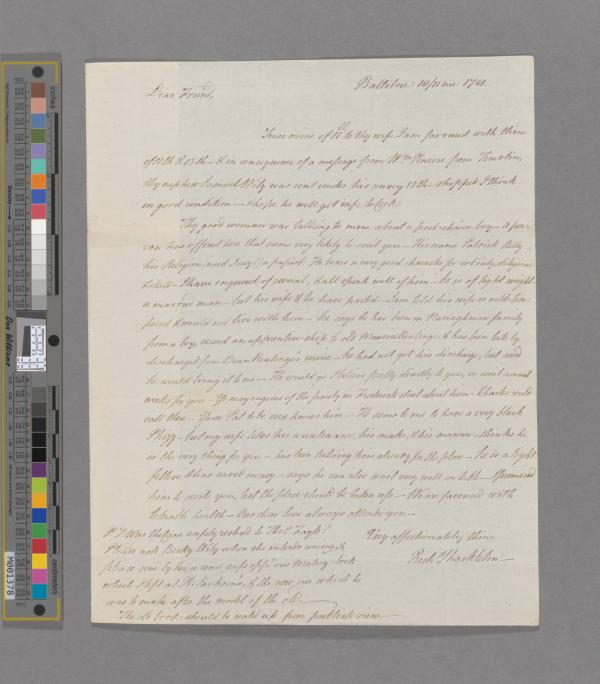 Ballitore: 18/11 mo: 1781.
Dear Friend,
Since mine of to thy wife I am favoured with thine
of 11th & 13th — & in consequence of a message from Wm Penrose from Timolin,
thy nephew Samuel Wily was sent under his convoy 15th — shipped I think
in good condition — I hope he will get safe to Cork.
Thy good woman was talking to mine about a post-chaise boy — a per-
son has offered here that seems very likely to suit you — His name Patrick Billy
his Religion (need I say) a papist. He bears a very good character for sobriety, diligence
I have enquired of several, & all speak well of him — he is of light weight
a married man — but his wife & he have parted — I am told his wife is
posed & would not live with him — He says he has been in family
from a boy, served an apprentice-ship to old Maurice Keatinge, & has been lately
discharged from Dean Keatinge's service — he had not got his discharge, but said
he would bring it to me — He would go I believe pretty directly to you, or wait several
weeks for you — Ye may enquire of the family in Frederick street about him — Charles would
call there — Your Pat to be sure knows him — He seems to me to have a very black
Phizz — but my wife likes his countenance, his make, & his manner — thinks he
is the very thing for you — has been tutoring him already for the place — He is a light
fellow, & has saved money — says he can also wait very well on table — I promised
him to write you, lest the place should be taken up — We are favoured with
tolerable health — Our dear love always attends you —
Very affectionately thine
Richd. Shackleton —
P.S. Was the Cane safely restored to Thos. Fayle?
Please ask Becky Wily when she intends coming, &
please send by her, or some safe oppy. our Meeting-book
which I left at R. Jackson's, & the new one which he
was to make after the model of the old.
The old book should be sealed up from publick view.
inches
centimeters
Don Williams
M001378